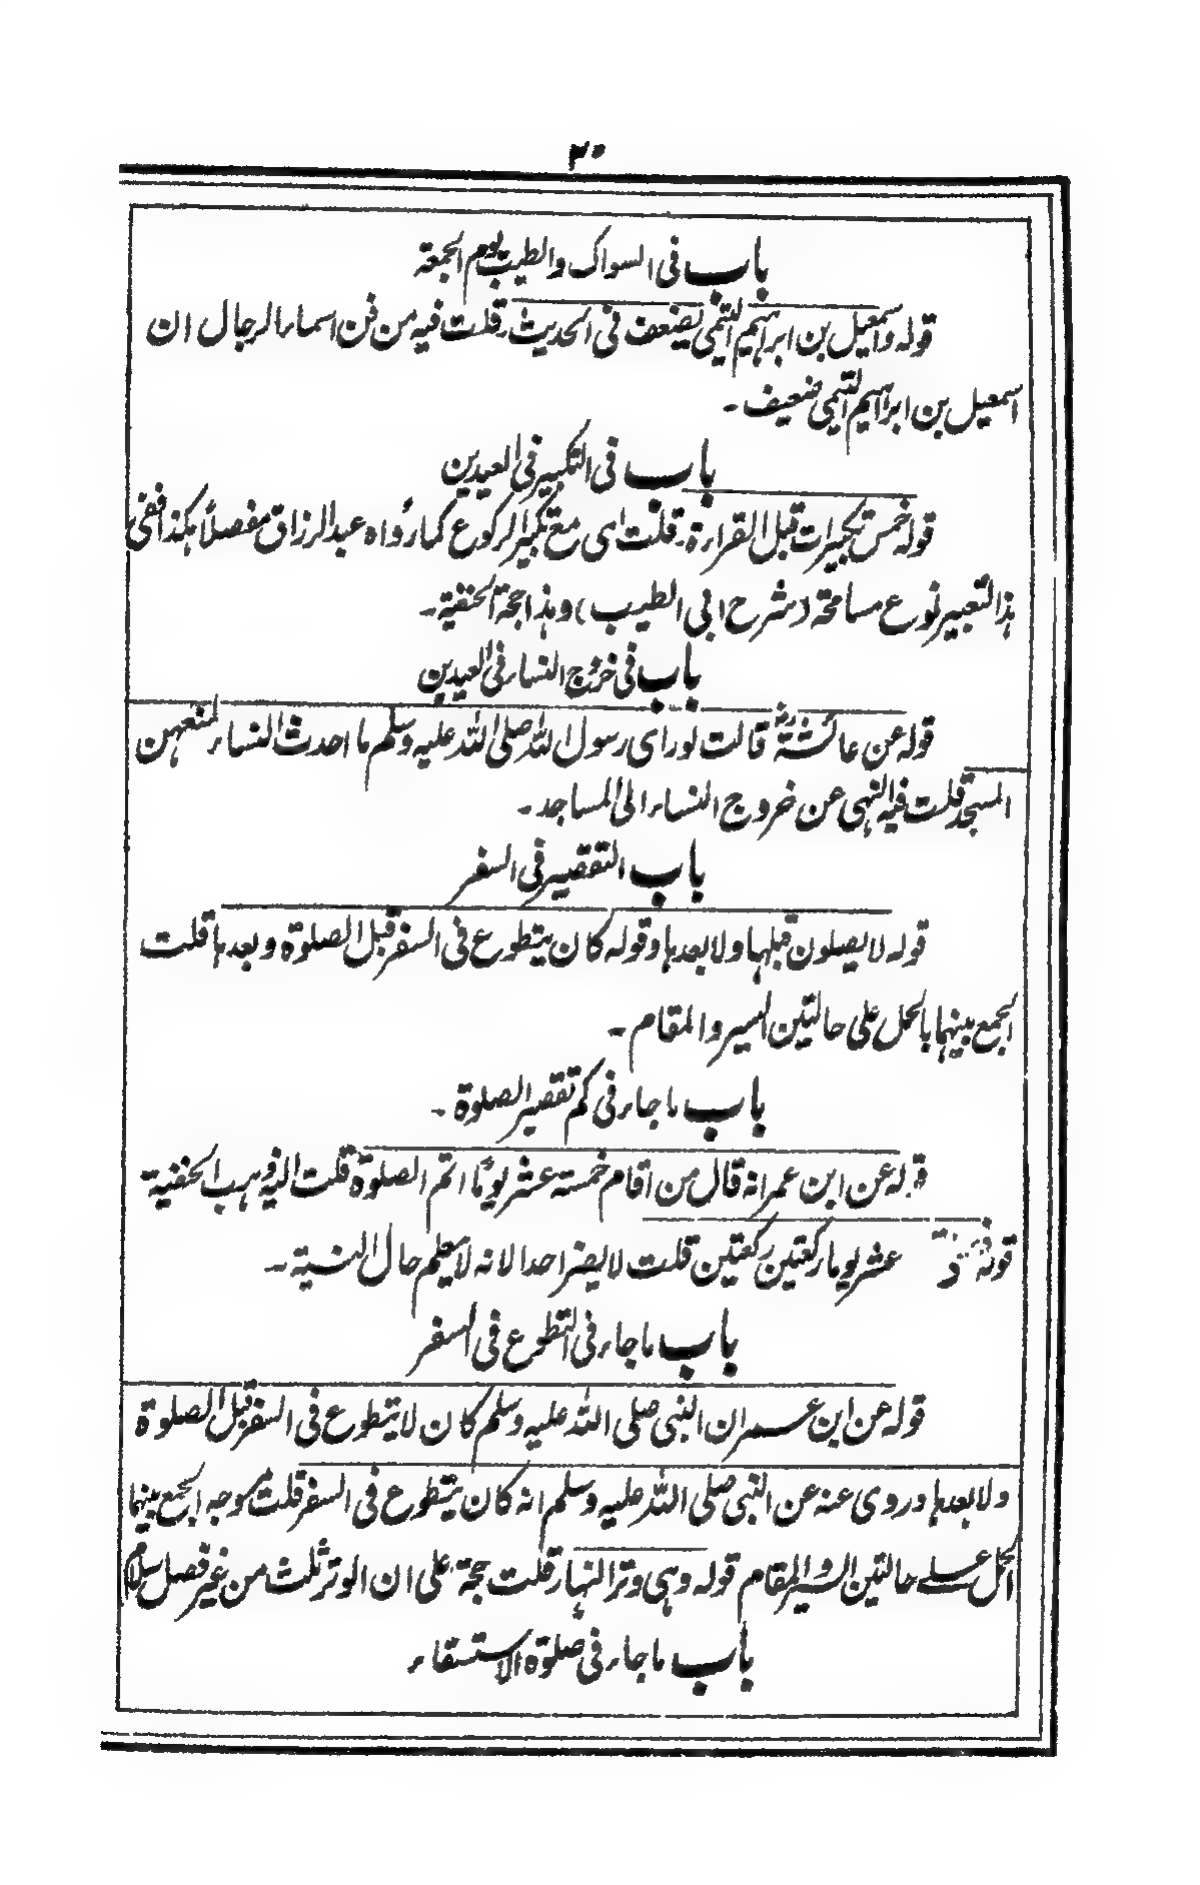 ٣٠
باب فی السواک والطیب یوم الجمعة
قولہ واسمعیل بن ابراہیم التیمی یضعف فی الحدیث۔ قلت فیہ من فن اسماء الرجال ان
اسمعیل بن ابراہیم التیمی ضعیف۔
باب فی التکبیر فی العیدین
قولہ خمس تکبیرات قبل القراءة۔ قلت ای مع تکبیر الرکوع کما رواہ عبد الرزاق مفصلاً ہکذا ففی
ہذا التعبیر نوع مسامحة (شرح ابی الطیب) وہذا حجة الحنفیة۔
باب فی خروج النساء فی العیدین
قولہ عن عائشة رض قالت لو رای رسول اللہ صلی اللہ علیہ وسلم ما احدث النساء لمنعہن
المسجد قلت فیہ النہی عن خروج النساء الی المساجد۔
باب التقصیر فی السفر
قولہ لا یصلون قبلہا ولا بعدہا وقولہ کان یتطوع فی السفر قبل الصلوة وبعدہا قلت
الجمع بینہما بالحمل علی حالتین السیر والمقام۔
باب ما جاء فی کم تقصیر الصلوة۔
قولہ عن ابن عمر انہ قال من اقام خمسة عشر یوماً اتم الصلوة قلت الیہ ذہب الحنفیة
قولہ عشر یوما رکعتین رکعتین قلت لا یضر احدا لانہ لا یعلم حال النیة۔
باب ما جاء فی التطوع فی السفر
قولہ عن ابن عمر ان النبی صلی اللہ علیہ وسلم کان لا یتطوع فی السفر قبل الصلوة
ولا بعدہا وروی عنہ عن النبی صلی اللہ علیہ وسلم انہ کان یتطوع فی السفر قلت وجہ الجمع بینہما
الحمل علے حالتین السیر والمقام قولہ وہی وتر النہار قلت حجة علی ان الوتر ثلث من غیر فصل سلام
باب ما جاء فی صلوة الاستسقاء